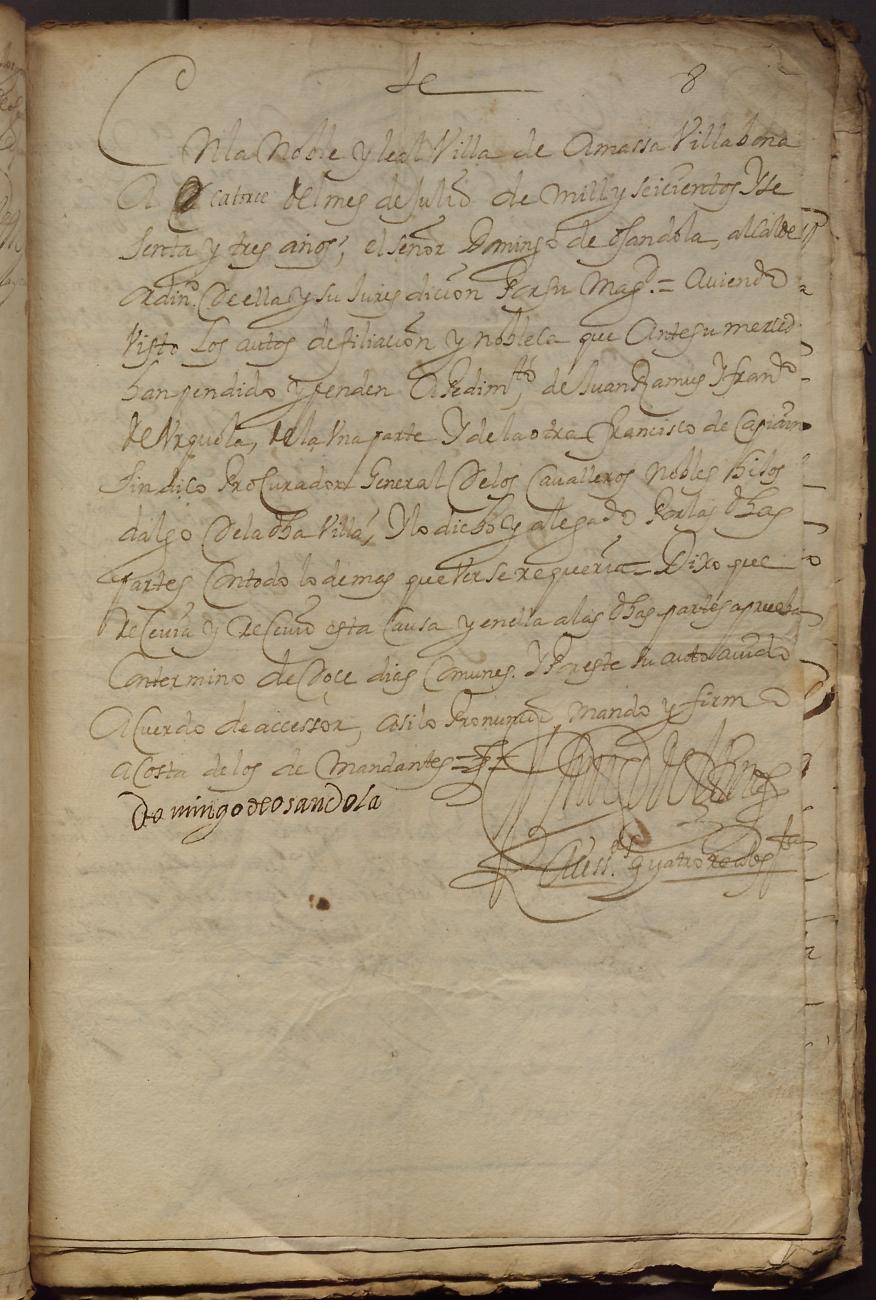 8
En la Noble y leal Villa de Amassa Villabona
A catorce del mes de Julio de mill y seicientos y se
senta y tres años, el señor Domingo de osandola, alcalde
ordin.º de ella y su Juresdicion Por su Magd. = Auiendo
Visto los autos de filiacion y nobleça que Ante su merced
han pendido y penden A Pedimto, de Juan Ramus y franco
de Vrquiola, de la vna parte y de la otra francisco de
sindico Procurador General de los Caualleros nobles hijos
dalgo de la dha villa, y lo dicho y alegado Por las dhas
partes Con todo lo demas que verse requeria = Dixo que
Receuia y Receuio esta Causa y en ella a las dhas partes a prueba
Con termino de Doçe dias Comunes. y Por este su auto auido
Acuerdo de accessor, assi lo Pronuncio, mando y firmo
a Costa de los de Mandantes =
Domingo de osandola